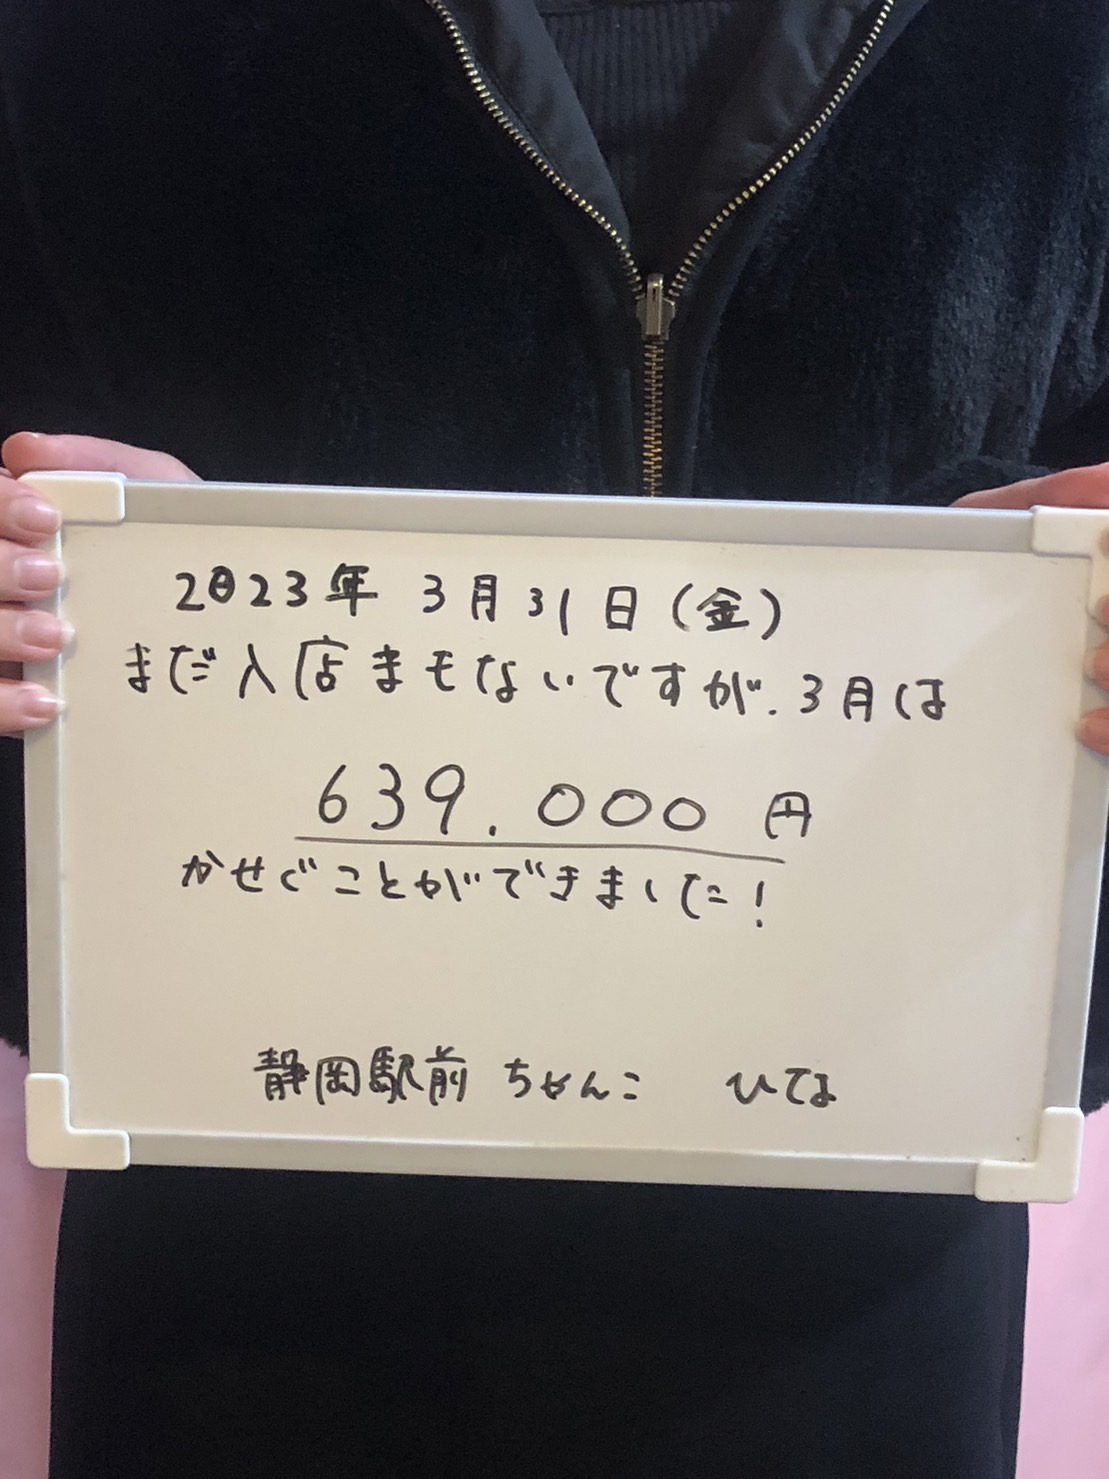 2023年 3月31日(金)
まだ入店まもないですが、3月は
639.000円
かせぐことができました!
静岡駅前 ちゃんこ